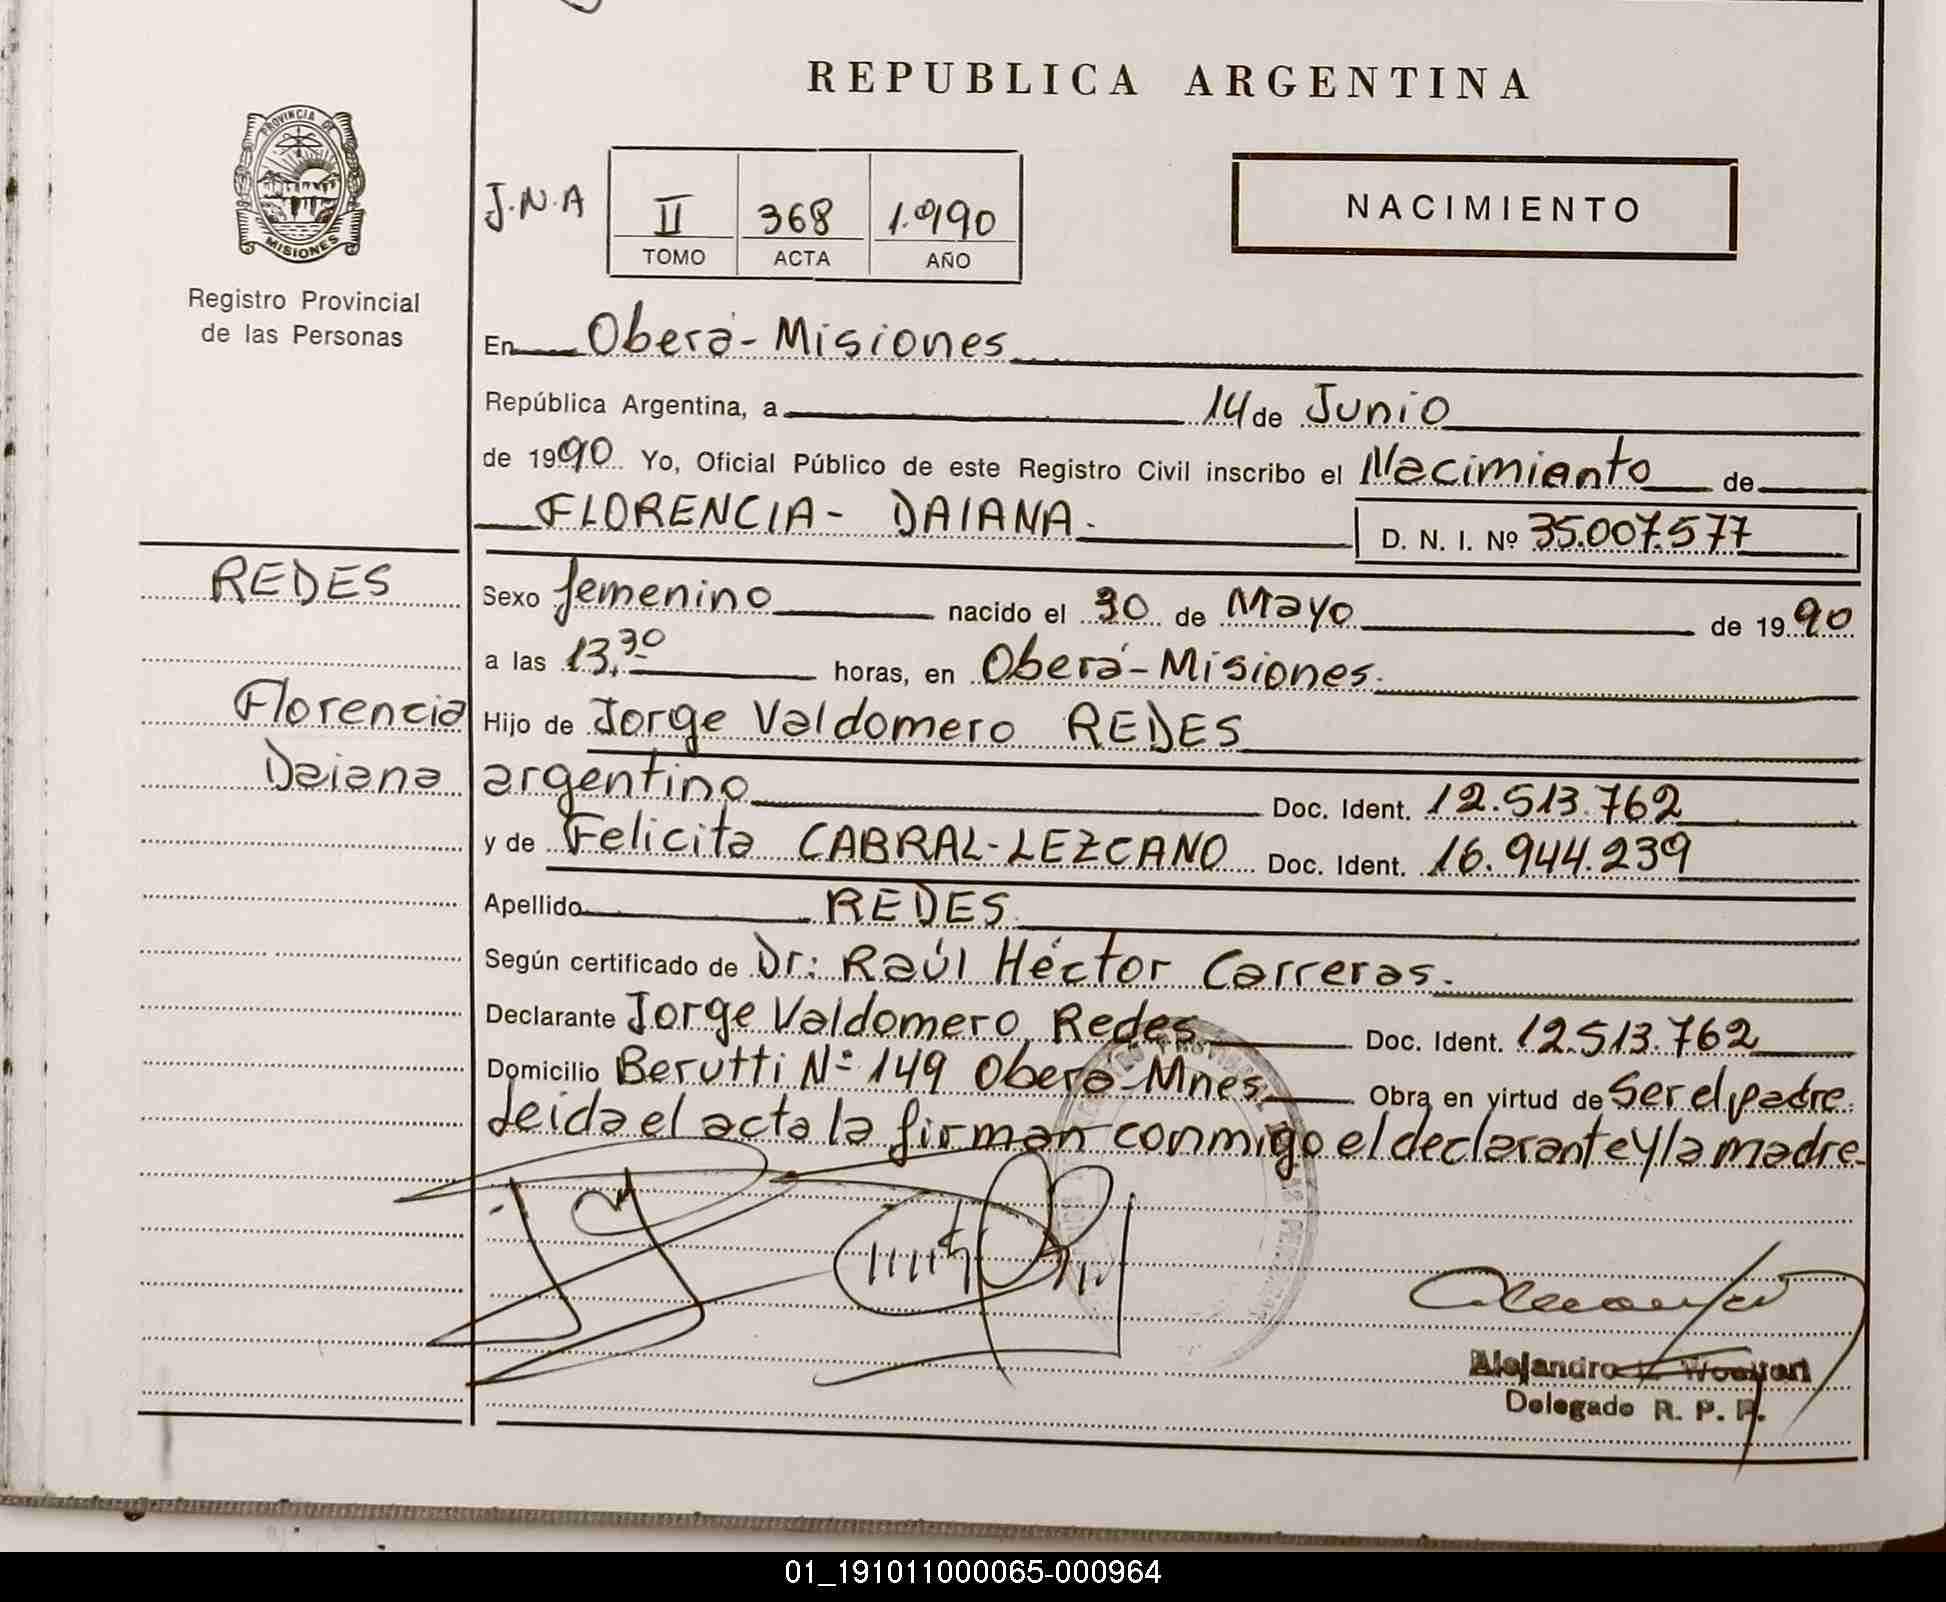 REPUBLICA ARGENTINA
PROVINCIA DE
MISIONES
Registro Provincial
de las Personas
J.N.A
II 368 1.990
TOMO ACTA AÑO
NACIMIENTO
En Oberá-Misiones
República Argentina, a 14 de Junio
de 1990 Yo, Oficial Público de este Registro Civil inscribo el Nacimiento de
FLORENCIA - DAIANA.
D. N. I. Nº 35.007.577
REDES
Florencia
Daiana
Sexo femenino nacido el 30 de Mayo de 1990
a las 13,30 horas, en Oberá-Misiones.
Hijo de Jorge Valdomero REDES
argentino Doc. Ident. 12.513.762
y de Felicita CABRAL-LEZCANO Doc. Ident. 16.944.239
Apellido REDES
Según certificado de Dr: Raúl Héctor Carreras.
Declarante Jorge Valdomero Redes Doc. Ident. 12.513.762
Domicilio Berutti Nº 149 Oberá-Mnes. Obra en virtud de Ser el padre.
Leida el acta la firman conmigo el declarante y la madre.
Alejandro
Delegado R. P. P.
01_191011000065-000964